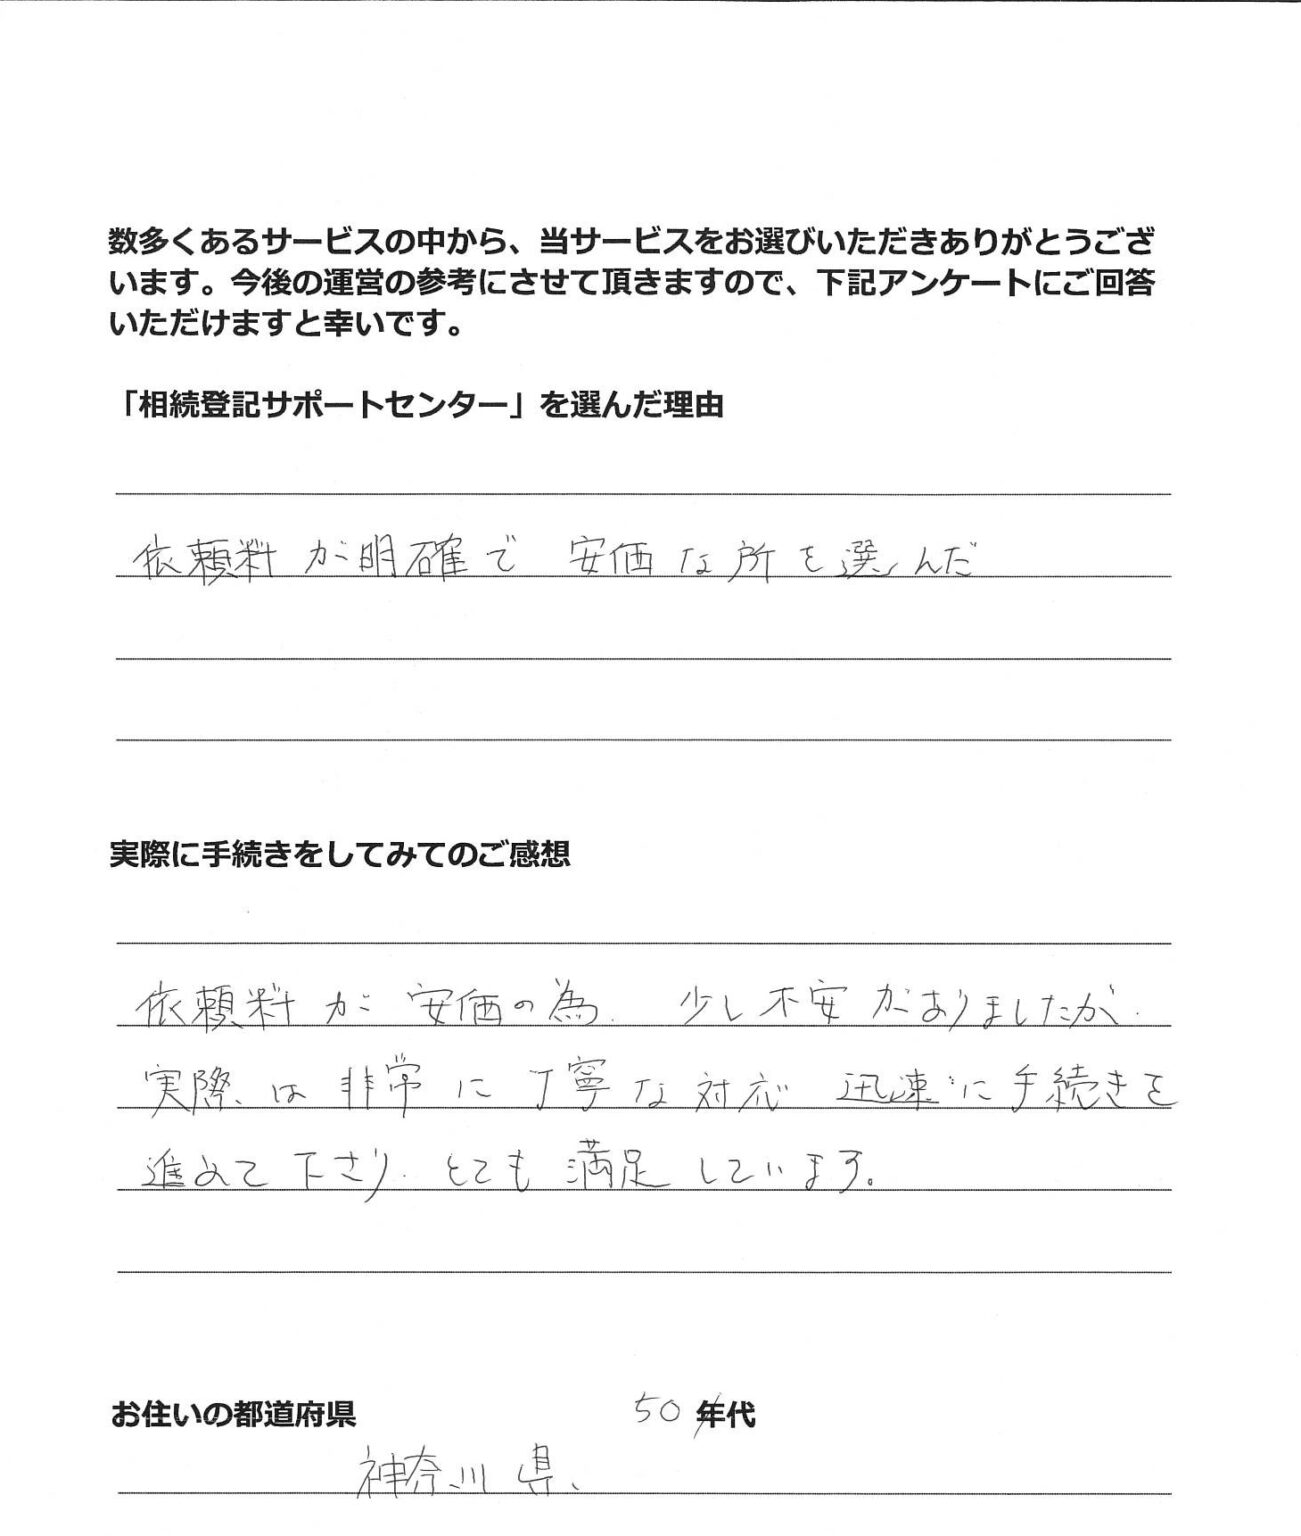 数多くあるサービスの中から、当サービスをお選びいただきありがとうござ
います。今後の運営の参考にさせて頂きますので、下記アンケートにご回答
いただけますと幸いです。
「相続登記サポートセンター」を選んだ理由
依頼料が明確で 安価な所を選んだ
実際に手続きをしてみてのご感想
依頼料が 安価の為、少し不安がありましたが、
実際は非常に丁寧な対応 迅速に手続きを
進めて下さり、とても満足しています。
お住いの都道府県 50 年代
神奈川県